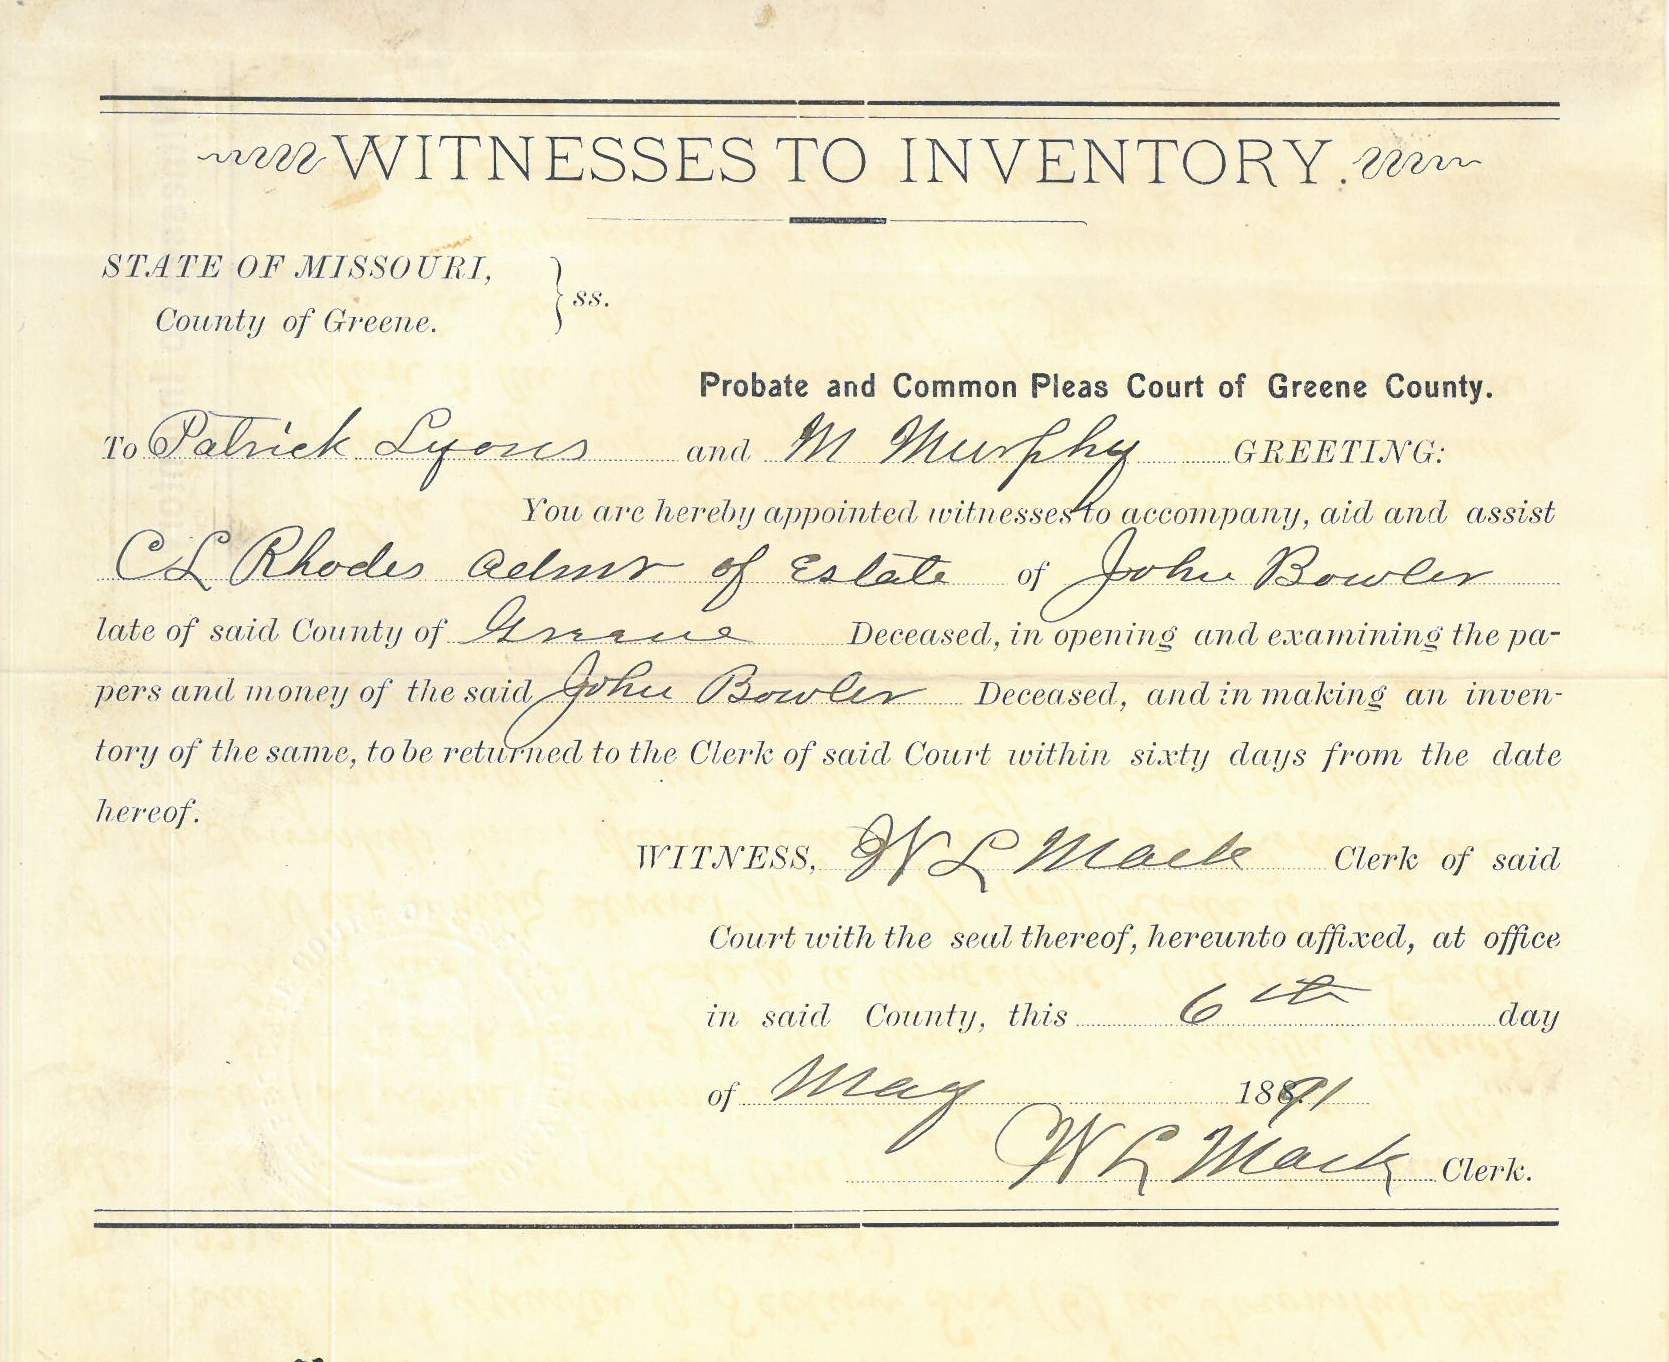 WITNESSES TO INVENTORY.
STATE OF MISSOURI,
County of Greene. } ss.
Probate and Common Pleas Court of Greene County.
To Patrick Lyons and M Murphy GREETING:
You are hereby appointed witnesses to accompany, aid and assist
C L Rhodes Admr of Estate of John Bowler
late of said County of Greene Deceased, in opening and examining the pa-
pers and money of the said John Bowler Deceased, and in making an inven-
tory of the same, to be returned to the Clerk of said Court within sixty days from the date
hereof.
WITNESS, W L Mack Clerk of said
Court with the seal thereof, hereunto affixed, at office
in said County, this 6th day
of May 1891
W L Mack Clerk.